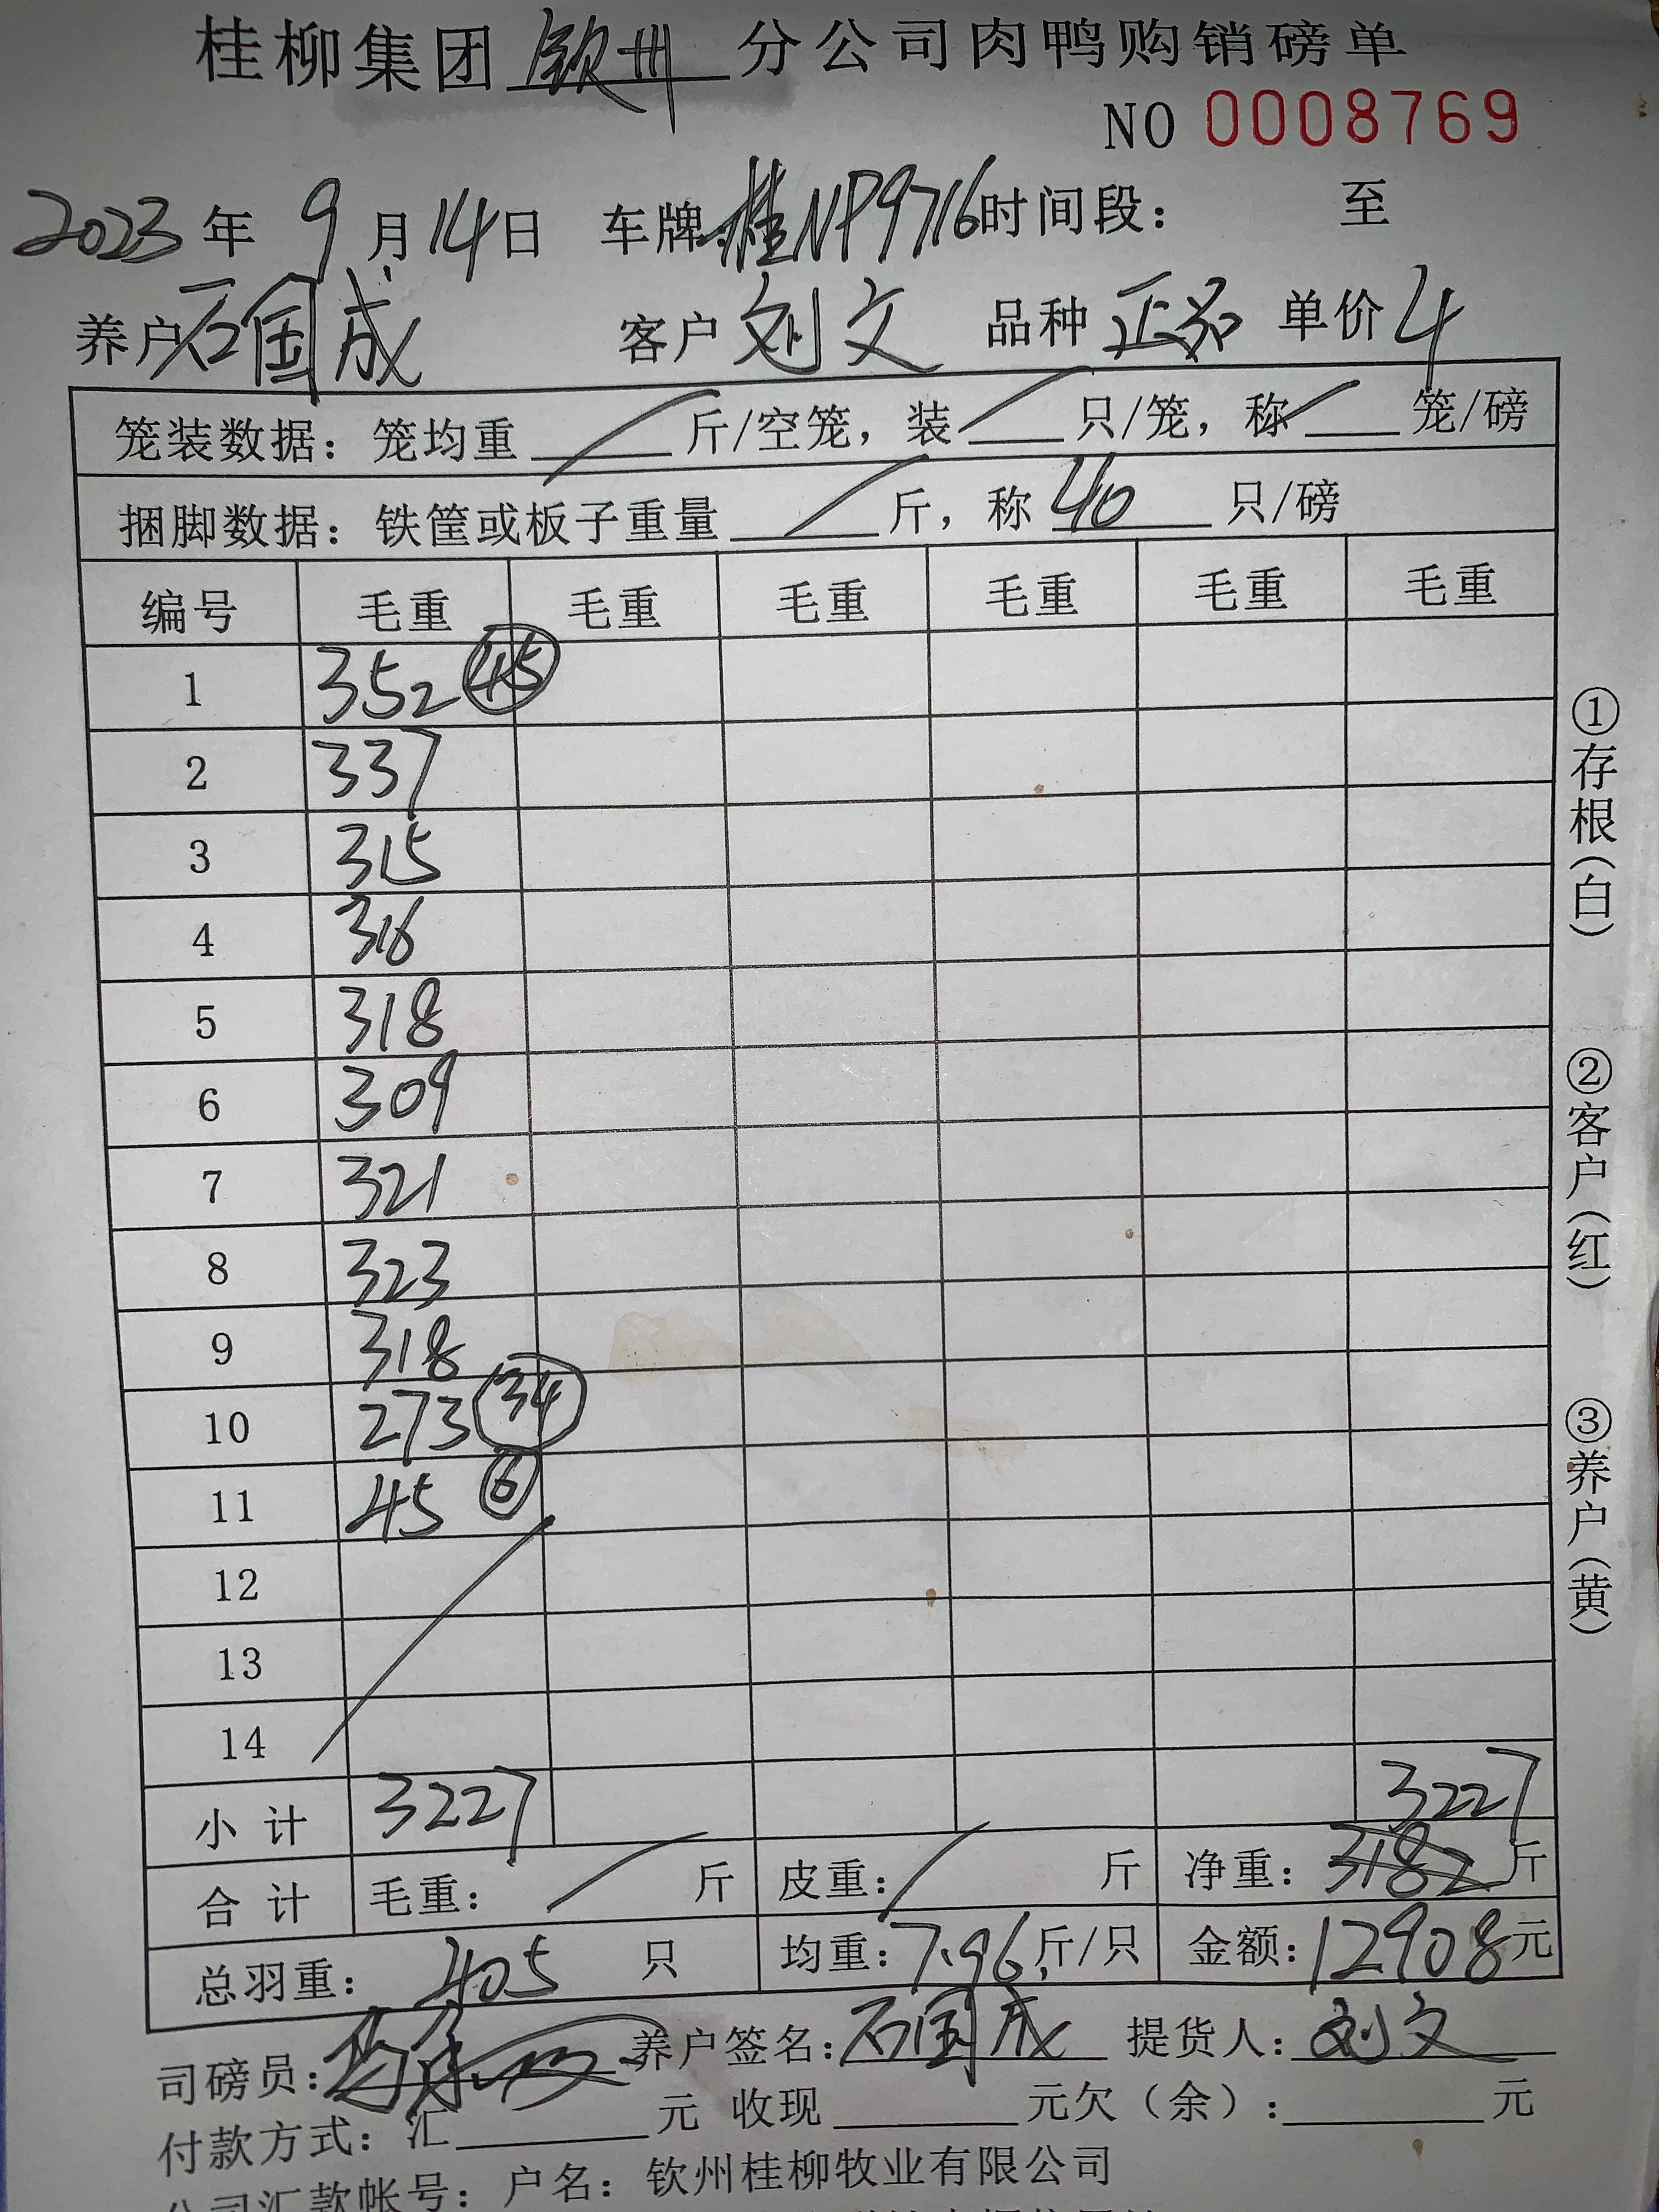 桂柳集团 钦州 分公司肉鸭购销磅单
NO 0008769
2023 年 9 月 14 日 车牌:桂NP9716 时间段: 至
养户 石国成 客户 刘文 品种 正品 单价 4
笼装数据: 笼均重 / 斤/空笼, 装 / 只/笼, 称 / 笼/磅
捆脚数据: 铁筐或板子重量 / 斤, 称 40 只/磅
编号 毛重 毛重 毛重 毛重 毛重 毛重
1 352 45
2 337
3 315
4 316
5 318
6 309
7 321
8 323
9 318
10 273 34
11 45 6
12
13
14
小计 3227 3227
合计 毛重: / 斤 皮重: / 斤 净重: 3182 斤
总羽重: 405 只 均重: 7.96 斤/只 金额: 12908 元
司磅员: 养户签名: 石国成 提货人: 刘文
付款方式: 汇 元 收现 元欠(余): 元
公司汇款帐号: 户名: 钦州桂柳牧业有限公司
①存根(白)
②客户(红)
③养户(黄)